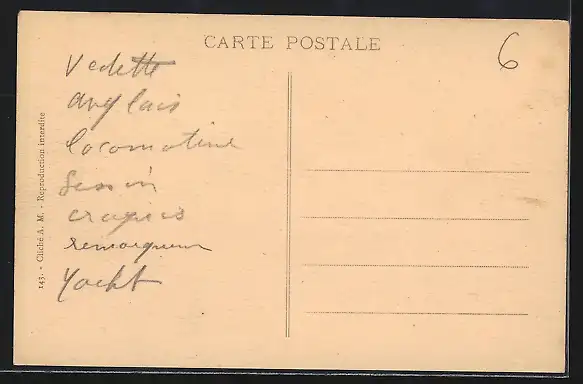 CARTE POSTALE
6
Vedette
anglais
locomotive
Dessin
croquis
remorqueur
Yacht
143. - Cliché A. M. - Reproduction interdite